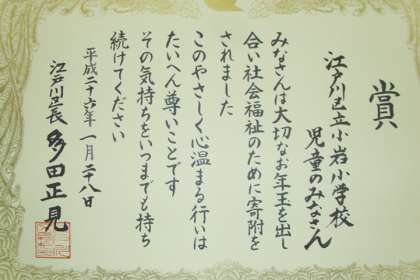 賞
江戸川区立小岩小学校
児童のみなさん
みなさんは大切なお年玉を出し
合い社会福祉のために寄附を
されました
このやさしく心温まる行いは
たいへん尊いことです
その気持ちをいつまでも持ち
続けてください
平成二十六年一月二十八日
江戸川区長 多田正見